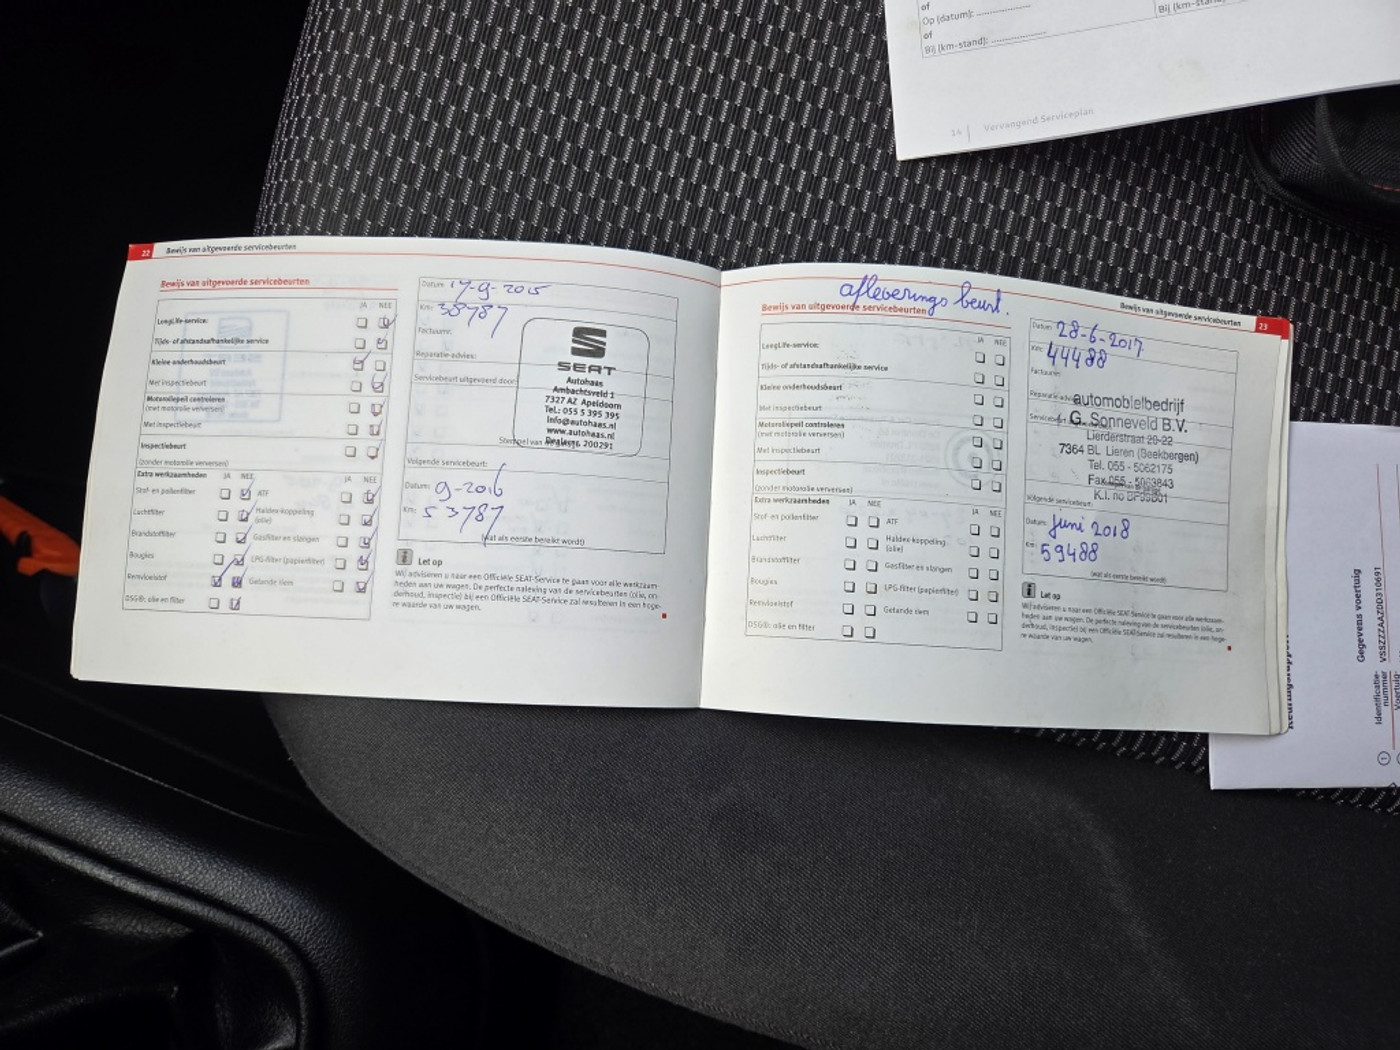 of
Op (datum): ....................
of
Bij (km-stand): ....................
Bij (km-stand)
14 | Vervangend Serviceplan
22 Bewijs van uitgevoerde servicebeurten
Bewijs van uitgevoerde servicebeurten
JA NEE
LongLife-service:
Tijds- of afstandsafhankelijke service
Kleine onderhoudsbeurt
Met inspectiebeurt
Motoroliepeil controleren
(met motorolie verversen)
Met inspectiebeurt
Inspectiebeurt
(zonder motorolie verversen)
Extra werkzaamheden JA NEE JA NEE
Stof- en pollenfilter ATF
Luchtfilter Haldex-koppeling
(olie)
Brandstoffilter Gasfilter en slangen
Bougies LPG-filter (papierfilter)
Remvloeistof Getande riem
DSG®: olie en filter
Datum: 17-9-2015
Km: 38787
Factuurnr.
Reparatie-advies:
Servicebeurt uitgevoerd door:
SEAT
Autohaas
Ambachtsveld 1
7327 AZ Apeldoorn
Tel.: 055 5 395 395
info@autohaas.nl
www.autohaas.nl
Dealernr. 200291
Stempel van
Volgende servicebeurt:
Datum: 9-2016
Km: 53787
(wat als eerste bereikt wordt)
Let op
Wij adviseren u naar een Officiële SEAT-Service te gaan voor alle werkzaam-
heden aan uw wagen. De perfecte naleving van de servicebeurten (olie, on-
derhoud, inspectie) bij een Officiële SEAT-Service zal resulteren in een hoge-
re waarde van uw wagen.
afleverings beurt.
Bewijs van uitgevoerde servicebeurten 23
Bewijs van uitgevoerde servicebeurten
JA NEE
LongLife-service:
Tijds- of afstandsafhankelijke service
Kleine onderhoudsbeurt
Met inspectiebeurt
Motoroliepeil controleren
(met motorolie verversen)
Met inspectiebeurt
Inspectiebeurt
(zonder motorolie verversen)
Extra werkzaamheden JA NEE JA NEE
Stof- en pollenfilter ATF
Luchtfilter Haldex-koppeling
(olie)
Brandstoffilter Gasfilter en slangen
Bougies LPG-filter (papierfilter)
Remvloeistof Getande riem
DSG®: olie en filter
Datum: 28-6-2017
Km: 44488
Factuurnr.
automobielbedrijf
G. Sonneveld B.V.
Lierderstraat 20-22
7364 BL Lieren (Beekbergen)
Tel. 055 - 5062175
Fax 055 - 5063843
Volgende servicebeurt:
Datum: juni 2018
Km: 59488
(wat als eerste bereikt wordt)
Let op
Wij adviseren u naar een Officiële SEAT-Service te gaan voor alle werkzaam-
heden aan uw wagen. De perfecte naleving van de servicebeurten (olie, on-
derhoud, inspectie) bij een Officiële SEAT-Service zal resulteren in een hoge-
re waarde van uw wagen.
Gegevens voertuig
Identificatie- VSSZZZAAZDD310691
nummer
Voertuig-